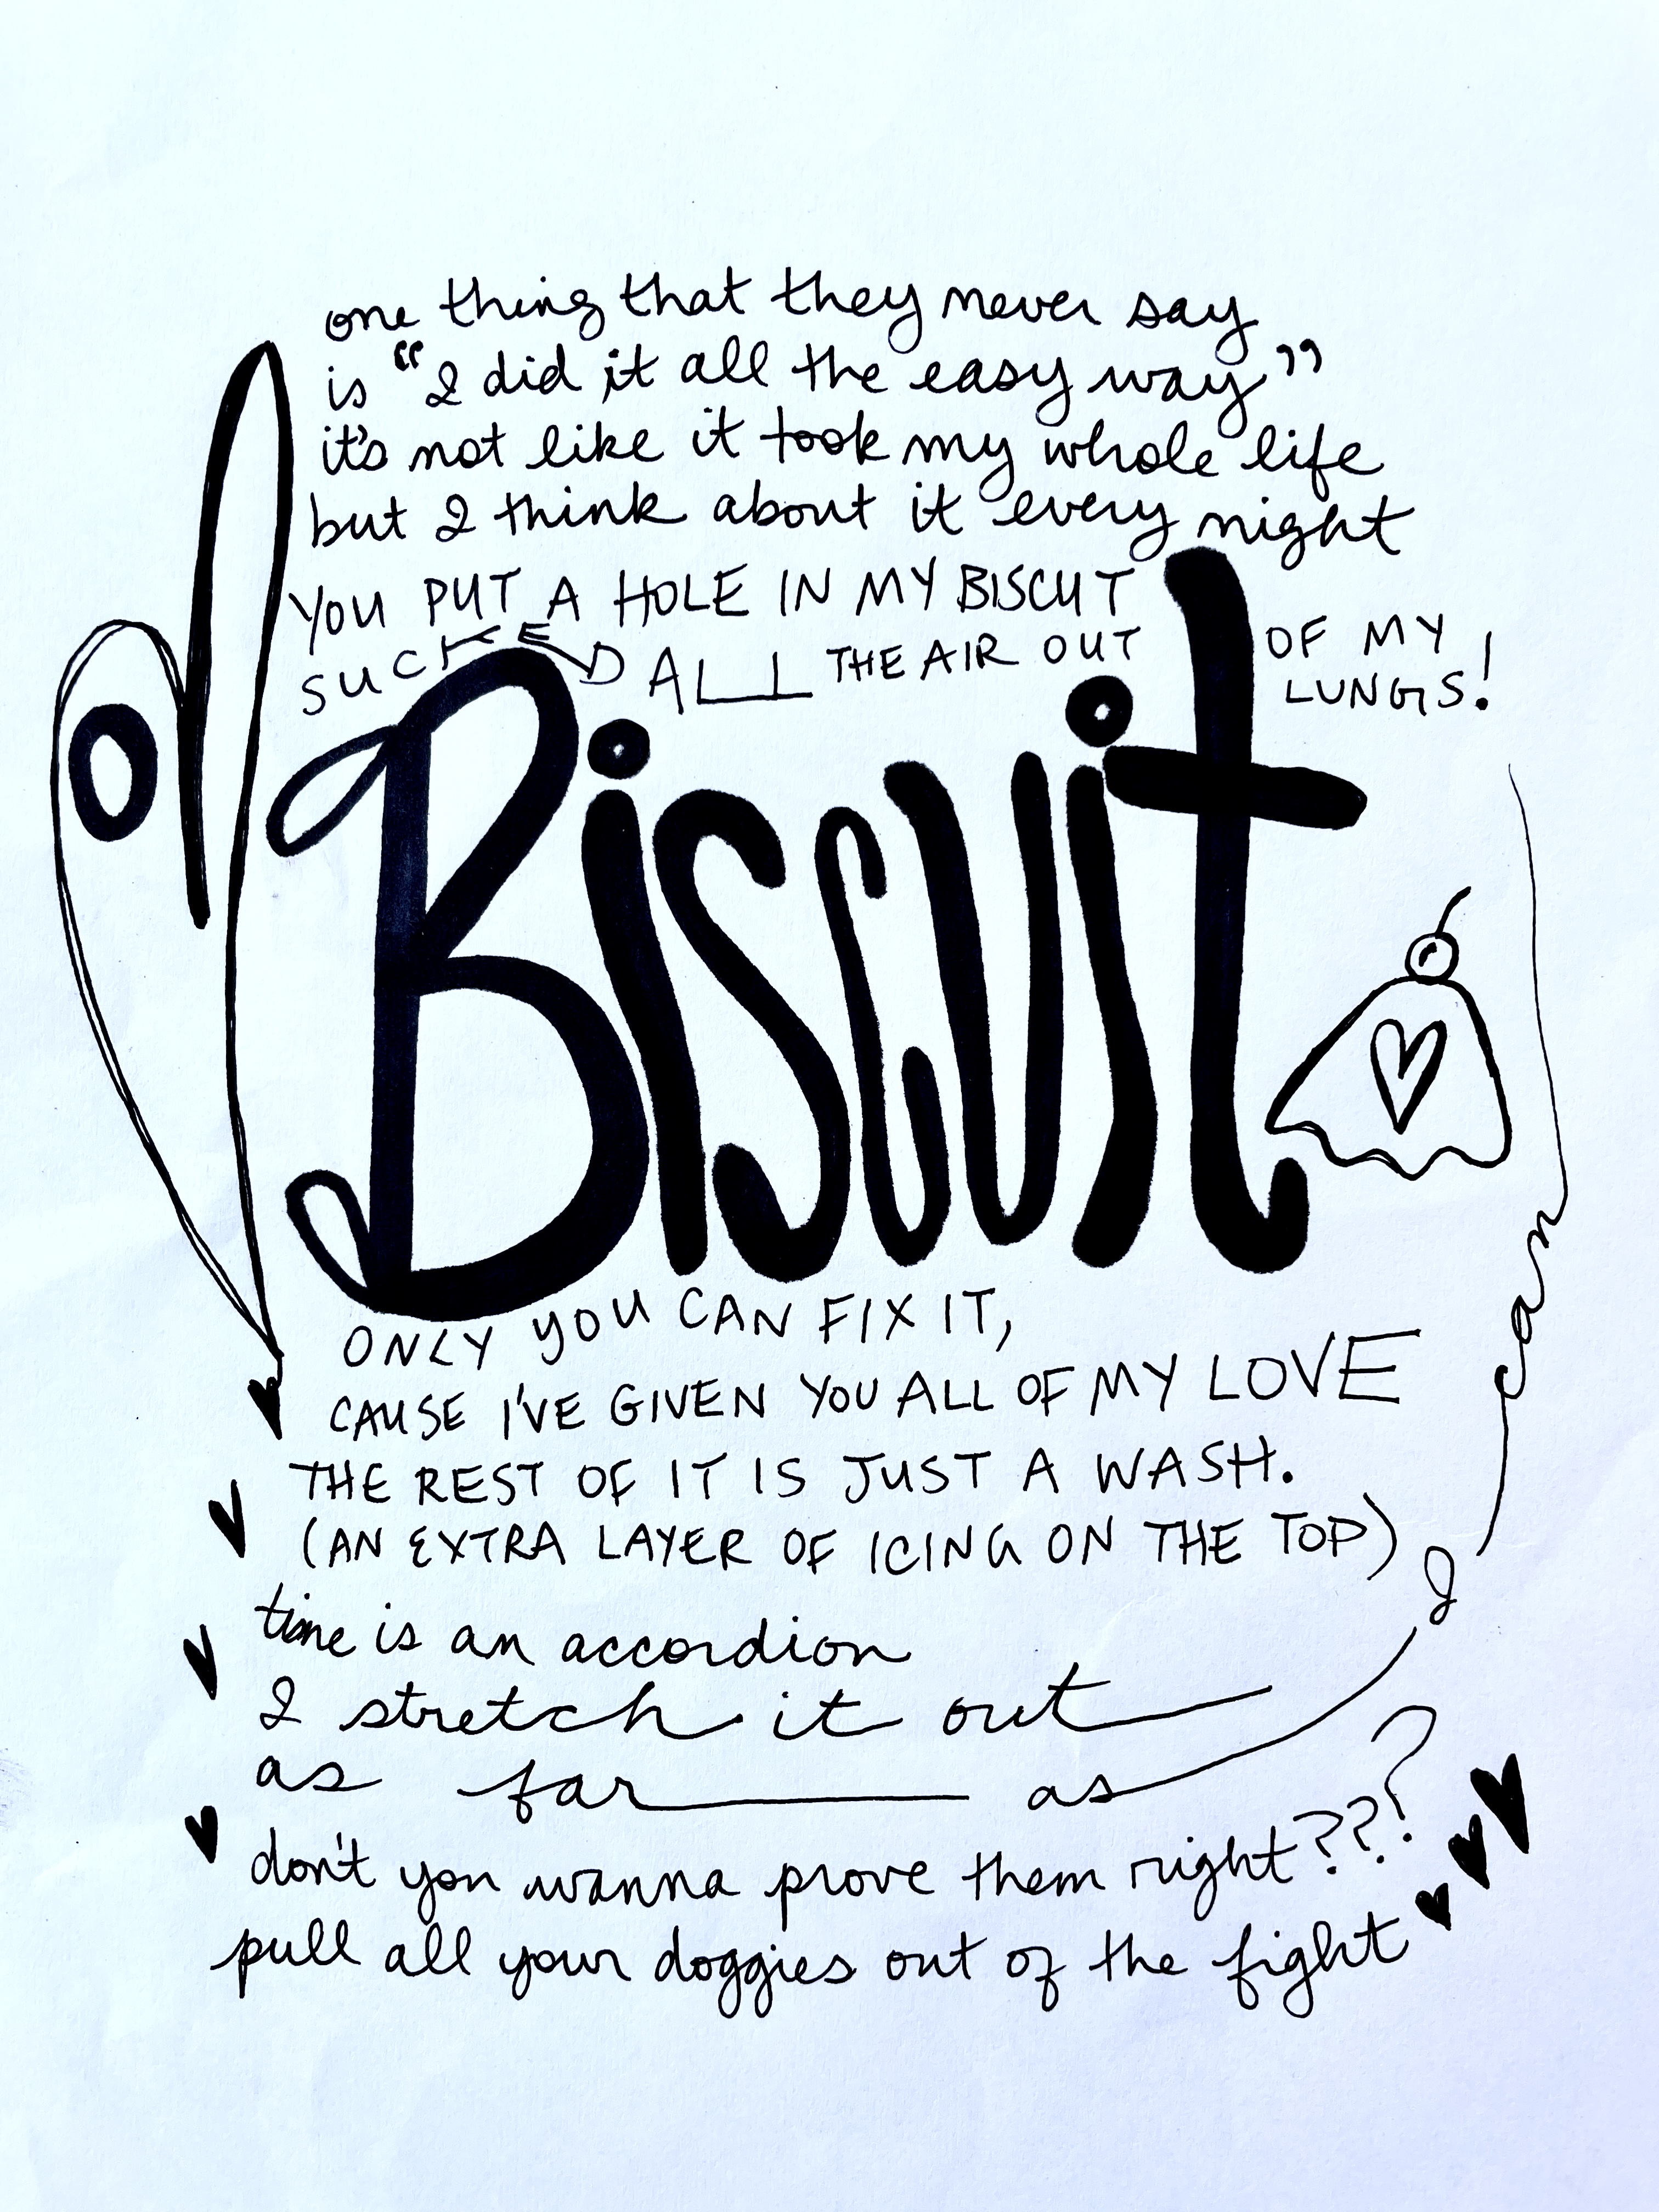 one thing that they never say
is "I did it all the easy way"
it's not like it took my whole life
but I think about it every night
YOU PUT A HOLE IN MY BISCUT
SUCKED ALL THE AIR OUT OF MY
LUNGS!
BISCUIT
ONLY YOU CAN FIX IT,
CAUSE I'VE GIVEN YOU ALL OF MY LOVE
THE REST OF IT IS JUST A WASH.
(AN EXTRA LAYER OF ICING ON THE TOP)
time is an accordion
I stretch it out
as far as I can
don't you wanna prove them right???
pull all your doggies out of the fight